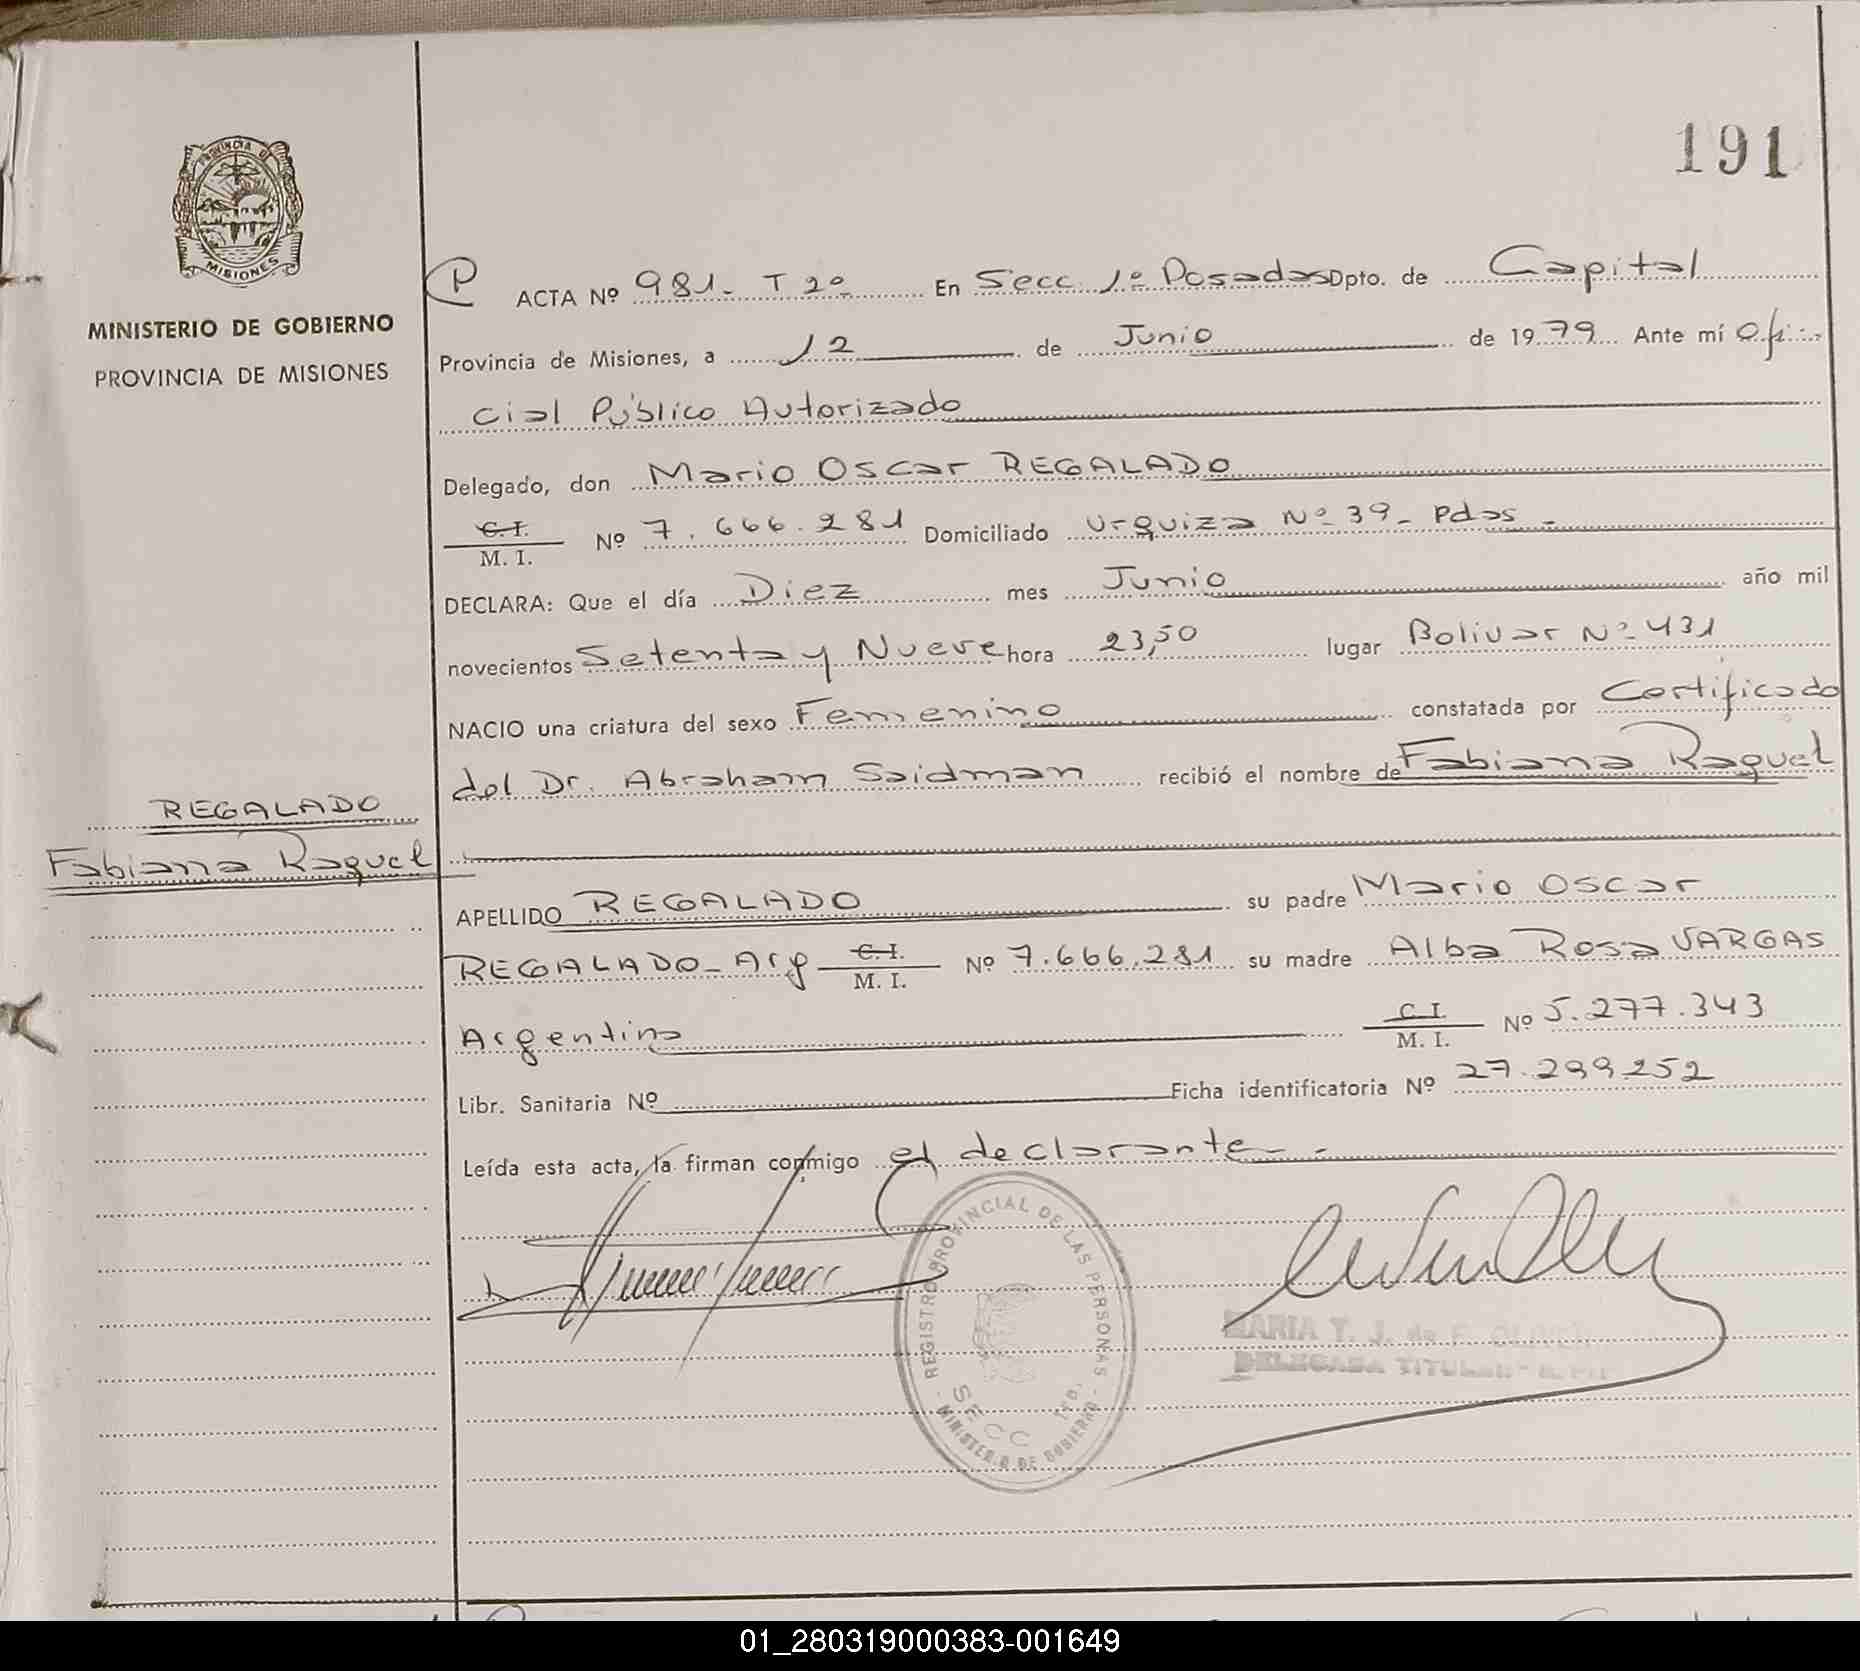 191
PROVINCIA DE
MISIONES
MINISTERIO DE GOBIERNO
PROVINCIA DE MISIONES
P ACTA Nº 981- T 2º En Secc. 1º Posadas Dpto. de Capital
Provincia de Misiones, a 12 de Junio de 1979 Ante mí Ofi-
cial Público Autorizado
Delegado, don Mario Oscar REGALADO
C.I.
M. I. Nº 7.666.281 Domiciliado Urquiza Nº 39- Pdas -
DECLARA: Que el día Diez mes Junio año mil
novecientos Setenta y Nueve hora 23,50 lugar Bolivar Nº 431
NACIO una criatura del sexo Femenino constatada por Certificado
del Dr. Abraham Saidman recibió el nombre de Fabiana Raquel
REGALADO
Fabiana Raquel
APELLIDO REGALADO su padre Mario Oscar
REGALADO- Arg C.I. M. I. Nº 7.666.281 su madre Alba Rosa VARGAS
Argentina C.I. M. I. Nº 5.277.343
Libr. Sanitaria Nº Ficha identificatoria Nº 27.299.252
Leída esta acta, la firman conmigo el declarante -
REGISTRO PROVINCIAL DE LAS PERSONAS
SECC 1ro.
- MINISTERIO DE GOBIERNO -
MARIA T. J. de F. OLIVER
DELEGADA TITULAR -
01_280319000383-001649